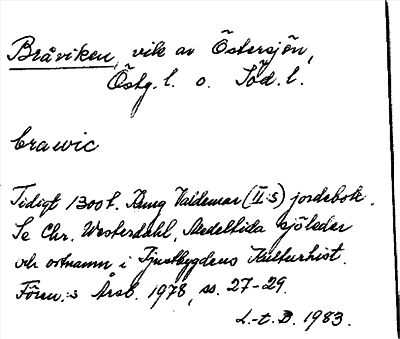 Bråviken, vik av Östersjön,
Östg. l. o. Söd. l.
brawic
Tidigt 1300 t. Kung Valdemar (II:s) jordebok.
Se Chr. Westerdahl, Medeltida sjöleder
och ortnamn i Tjustbygdens Kulturhist.
Fören:s Årsb. 1978, ss. 27-29.
L.-t. B. 1983.